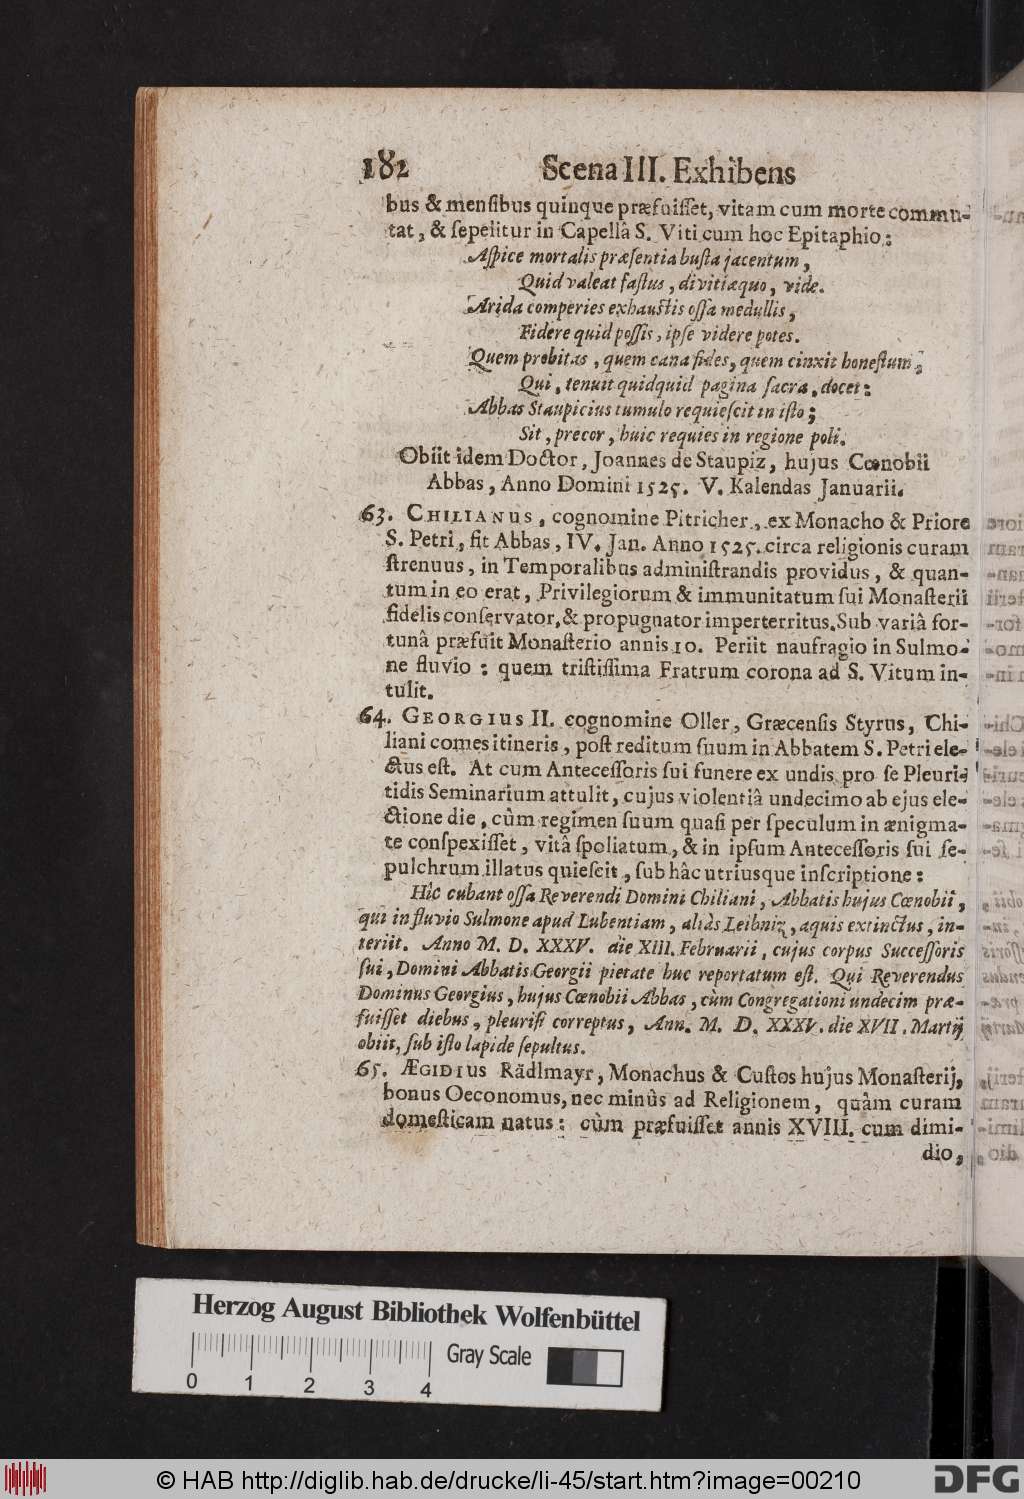 182 Scena III. Exhibens
bus & mensibus quinque præfuisset, vitam cum morte commu-
tat, & sepelitur in Capellâ S. Viti cum hoc Epitaphio:
Aspice mortalis præsentia busta jacentum,
Quid valeat fastus, divitiæquo, vide.
Arida comperies exhaustis ossa medullis,
Fidere quid possis, ipse videre potes.
Quem probitas, quem cana fides, quem cinxit honestum,
Qui, tenuit quidquid pagina sacra, docet:
Abbas Staupicius tumulo requiescit in isto;
Sit, precor, huic requies in regione poli.
Obiit idem Doctor, Joannes de Staupiz, hujus Cœnobii
Abbas, Anno Domini 1525. V. Kalendas Januarii.
63. CHILIANUS, cognomine Pitricher, ex Monacho & Priore
S. Petri, fit Abbas, IV. Jan. Anno 1525. circa religionis curam
strenuus, in Temporalibus administrandis providus, & quan-
tum in eo erat, Privilegiorum & immunitatum sui Monasterii
fidelis conservator, & propugnator imperterritus. Sub variâ for-
tunâ præfuit Monasterio annis 10. Periit naufragio in Sulmo-
ne fluvio: quem tristissima Fratrum corona ad S. Vitum in-
tulit.
64. GEORGIUS II. cognomine Oller, Græcensis Styrus, Chi-
liani comes itineris, post reditum suum in Abbatem S. Petri ele-
ctus est. At cum Antecessoris sui funere ex undis pro se Pleuri-
tidis Seminarium attulit, cujus violentiâ undecimo ab ejus ele-
ctione die, cùm regimen suum quasi per speculum in ænigma-
te conspexisset, vitâ spoliatum, & in ipsum Antecessoris sui se-
pulchrum illatus quiescit, sub hâc utriusque inscriptione:
Hîc cubant ossa Reverendi Domini Chiliani, Abbatis hujus Cœnobii,
qui in fluvio Sulmone apud Lubentiam, aliàs Leibniz, aquis extinctus, in-
teriit. Anno M. D. XXXV. die XIII. Februarii, cujus corpus Successoris
sui, Domini Abbatis Georgii pietate huc reportatum est. Qui Reverendus
Dominus Georgius, hujus Cœnobii Abbas, cùm Congregationi undècim præ-
fuisset diebus, pleurisi correptus, Ann. M. D. XXXV. die XVII. Martij
obiit, sub isto lapide sepultus.
65. ÆGIDIUS Rädlmayr, Monachus & Custos hujus Monasterij,
bonus Oeconomus, nec minùs ad Religionem, quàm curam
domesticam natus: cùm præfuisset annis XVIII. cum dimi-
dio,
Herzog August Bibliothek Wolfenbüttel
Gray Scale
0 1 2 3 4
© HAB http://diglib.hab.de/drucke/li-45/start.htm?image=00210
DFG